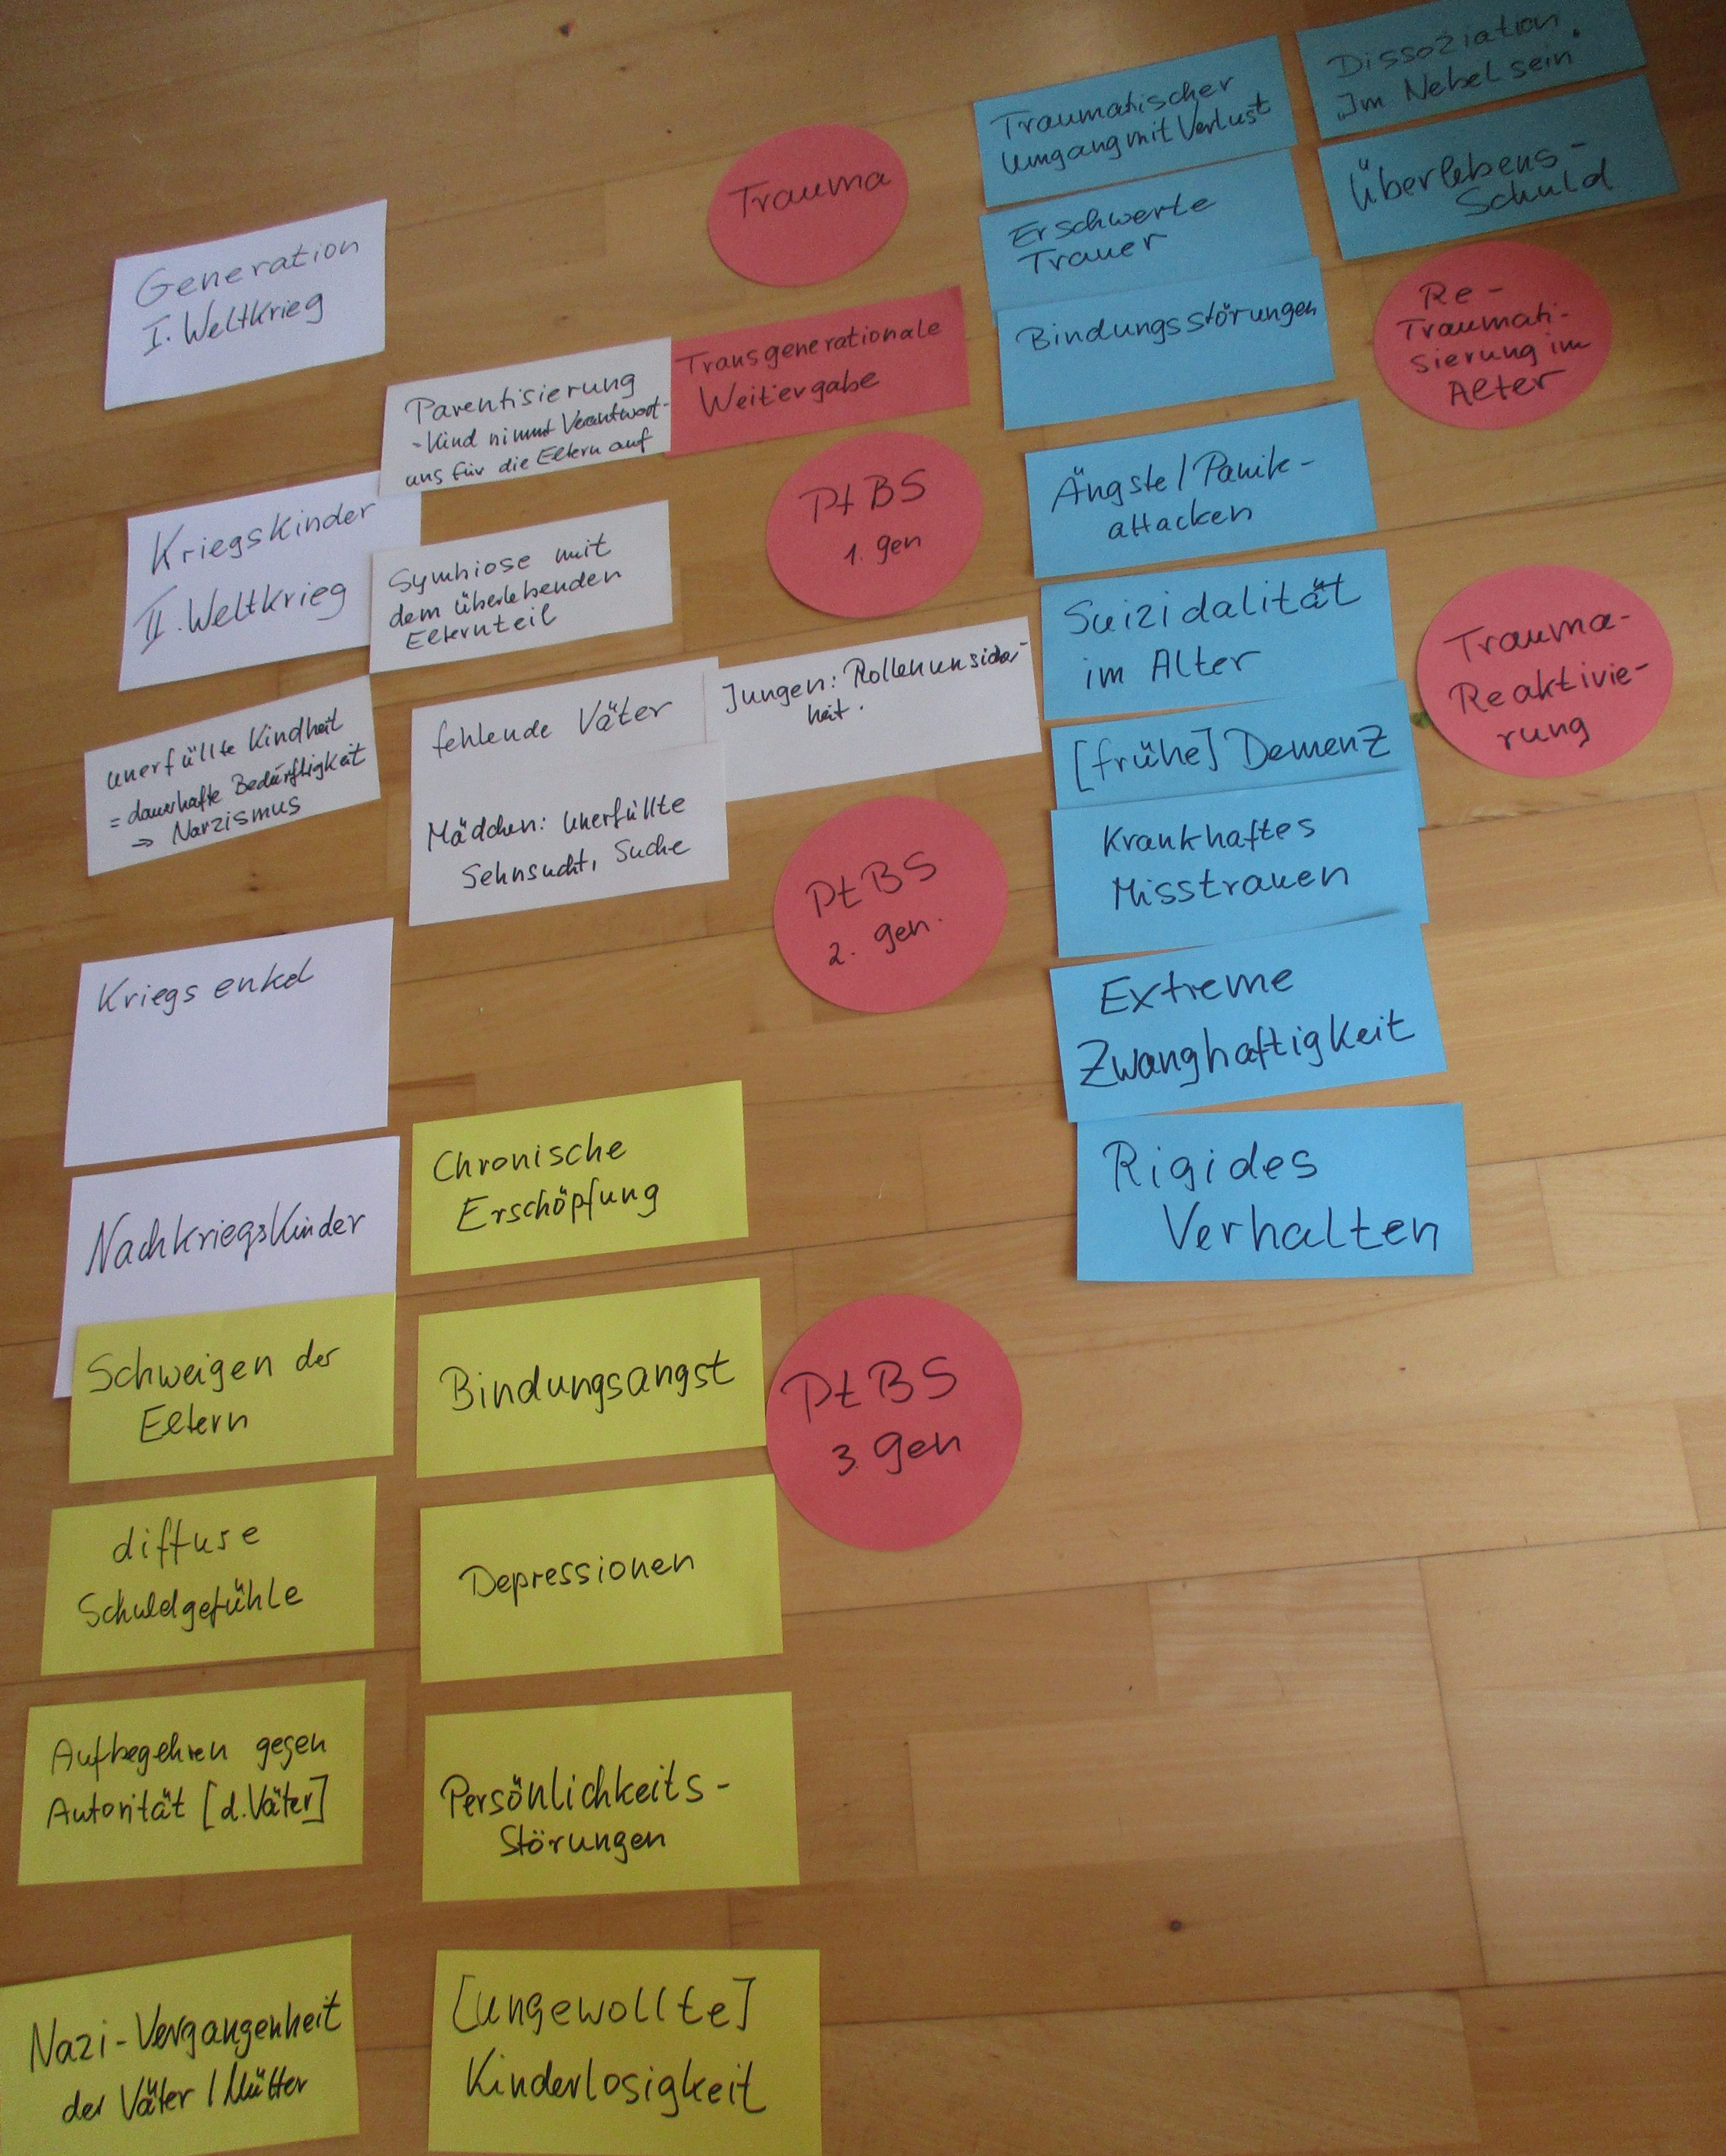 Generation
I. Weltkrieg
Parentisierung
- Kind nimmt Verantwort-
uns für die Eltern auf
Kriegskinder
II. Weltkrieg
Symbiose mit
dem überlebenden
Elternteil
unerfüllte Kindheit
= dauerhafte Bedürftigkeit
⇒ Narzismus
fehlende Väter
Mädchen: unerfüllte
Sehnsucht, Suche
Jungen: Rollenunsicher-
heit.
Kriegsenkel
Nachkriegskinder
Schweigen der
Eltern
diffuse
Schuldgefühle
Aufbegehren gegen
Autorität [d. Väter]
Nazi-Vergangenheit
der Väter / Mütter
Chronische
Erschöpfung
Bindungsangst
Depressionen
Persönlichkeits-
Störungen
[ungewollte]
Kinderlosigkeit
Trauma
Transgenerationale
Weitergabe
PtBS
1. gen
PtBS
2. gen.
PtBS
3. gen
Traumatischer
Umgang mit Verlust
Erschwerte
Trauer
Bindungsstörungen
Ängste / Panik-
attacken
Suizidalität
im Alter
[frühe] Demenz
Krankhaftes
Misstrauen
Extreme
Zwanghaftigkeit
Rigides
Verhalten
Dissoziation
"Im Nebel sein"
Überlebens-
Schuld
Re-
Traumati-
sierung im
Alter
Trauma-
Reaktivie-
rung